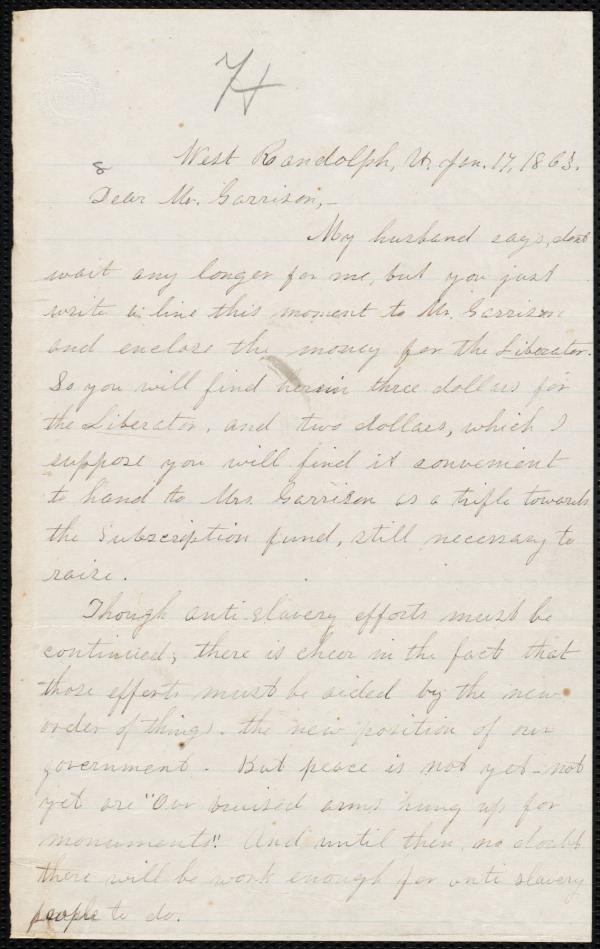 74
West Randolph, Vt. Jan. 17, 1863.
Dear Mr. Garrison,—
My husband says, dont
wait any longer for me, but you just
write a line this moment to Mr. Garrison
and enclose the money for the Liberator.
So you will find herein three dollars for
the Liberator, and two dollars, which I
suppose you will find it convenient
to hand to Mrs. Garrison as a trifle towards
the Subscription fund, still necessary to
raise.
Though anti-slavery efforts must be
continued; there is cheer in the fact that
those efforts must be aided by the new
order of things. the new position of our
government. But peace is not yet—not
yet are "Our bruised arms hung up for
monuments". And until then, no doubt
there will be work enough for anti slavery
people to do.